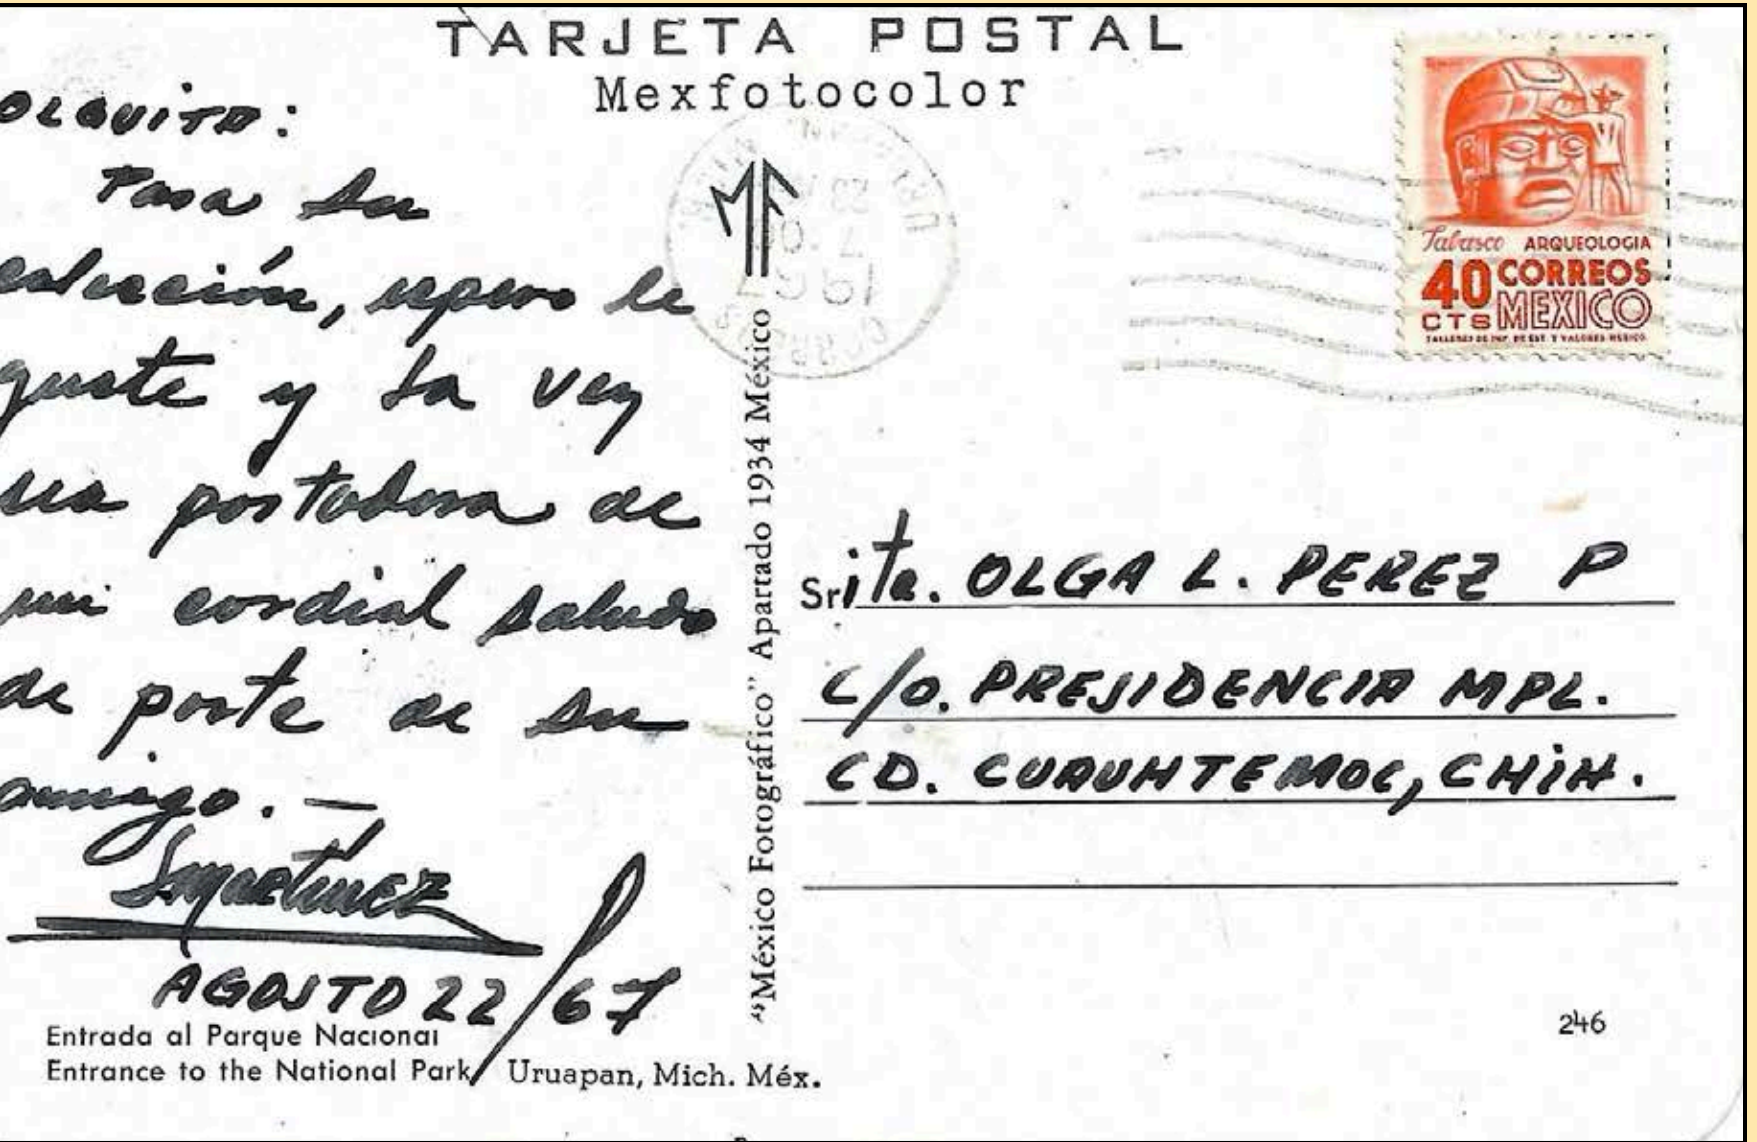 TARJETA POSTAL
Mexfotocolor
OLGUITA:
Para su
colección, espero le
guste y la vez
sea portadora de
mi cordial saludo
de parte de su
amigo. —
SMARTINEZ
AGOSTO 22/67
Entrada al Parque Nacional
Entrance to the National Park
Uruapan, Mich. Méx.
MF
"México Fotográfico" Apartado 1934 México
1967
Tabasco ARQUEOLOGIA
40 CORREOS
CTS MEXICO
TALLERES DE IMP. DE EST. Y VALORES MEXICO.
Srita. OLGA L. PEREZ P
C/O. PRESIDENCIA MPL.
CD. CUAUHTEMOC, CHIH.
246